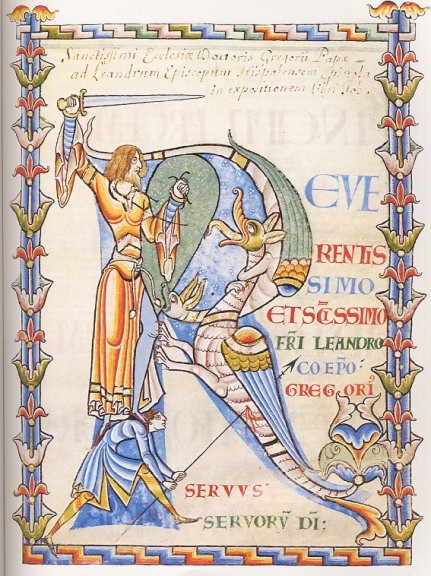 Sanctissimi Ecclesiæ Doctoris Gregorii Papæ -
ad Leandrum Episcopum Hispalensem Epistola
in expositionem libri Job.
REVE
RENTIS
SIMO
ET SC̅ISSIMO
FR̅I LEANDRO
COEP̅O:
GREGORI᾽
SERVVS
SERVORV̅ DI: